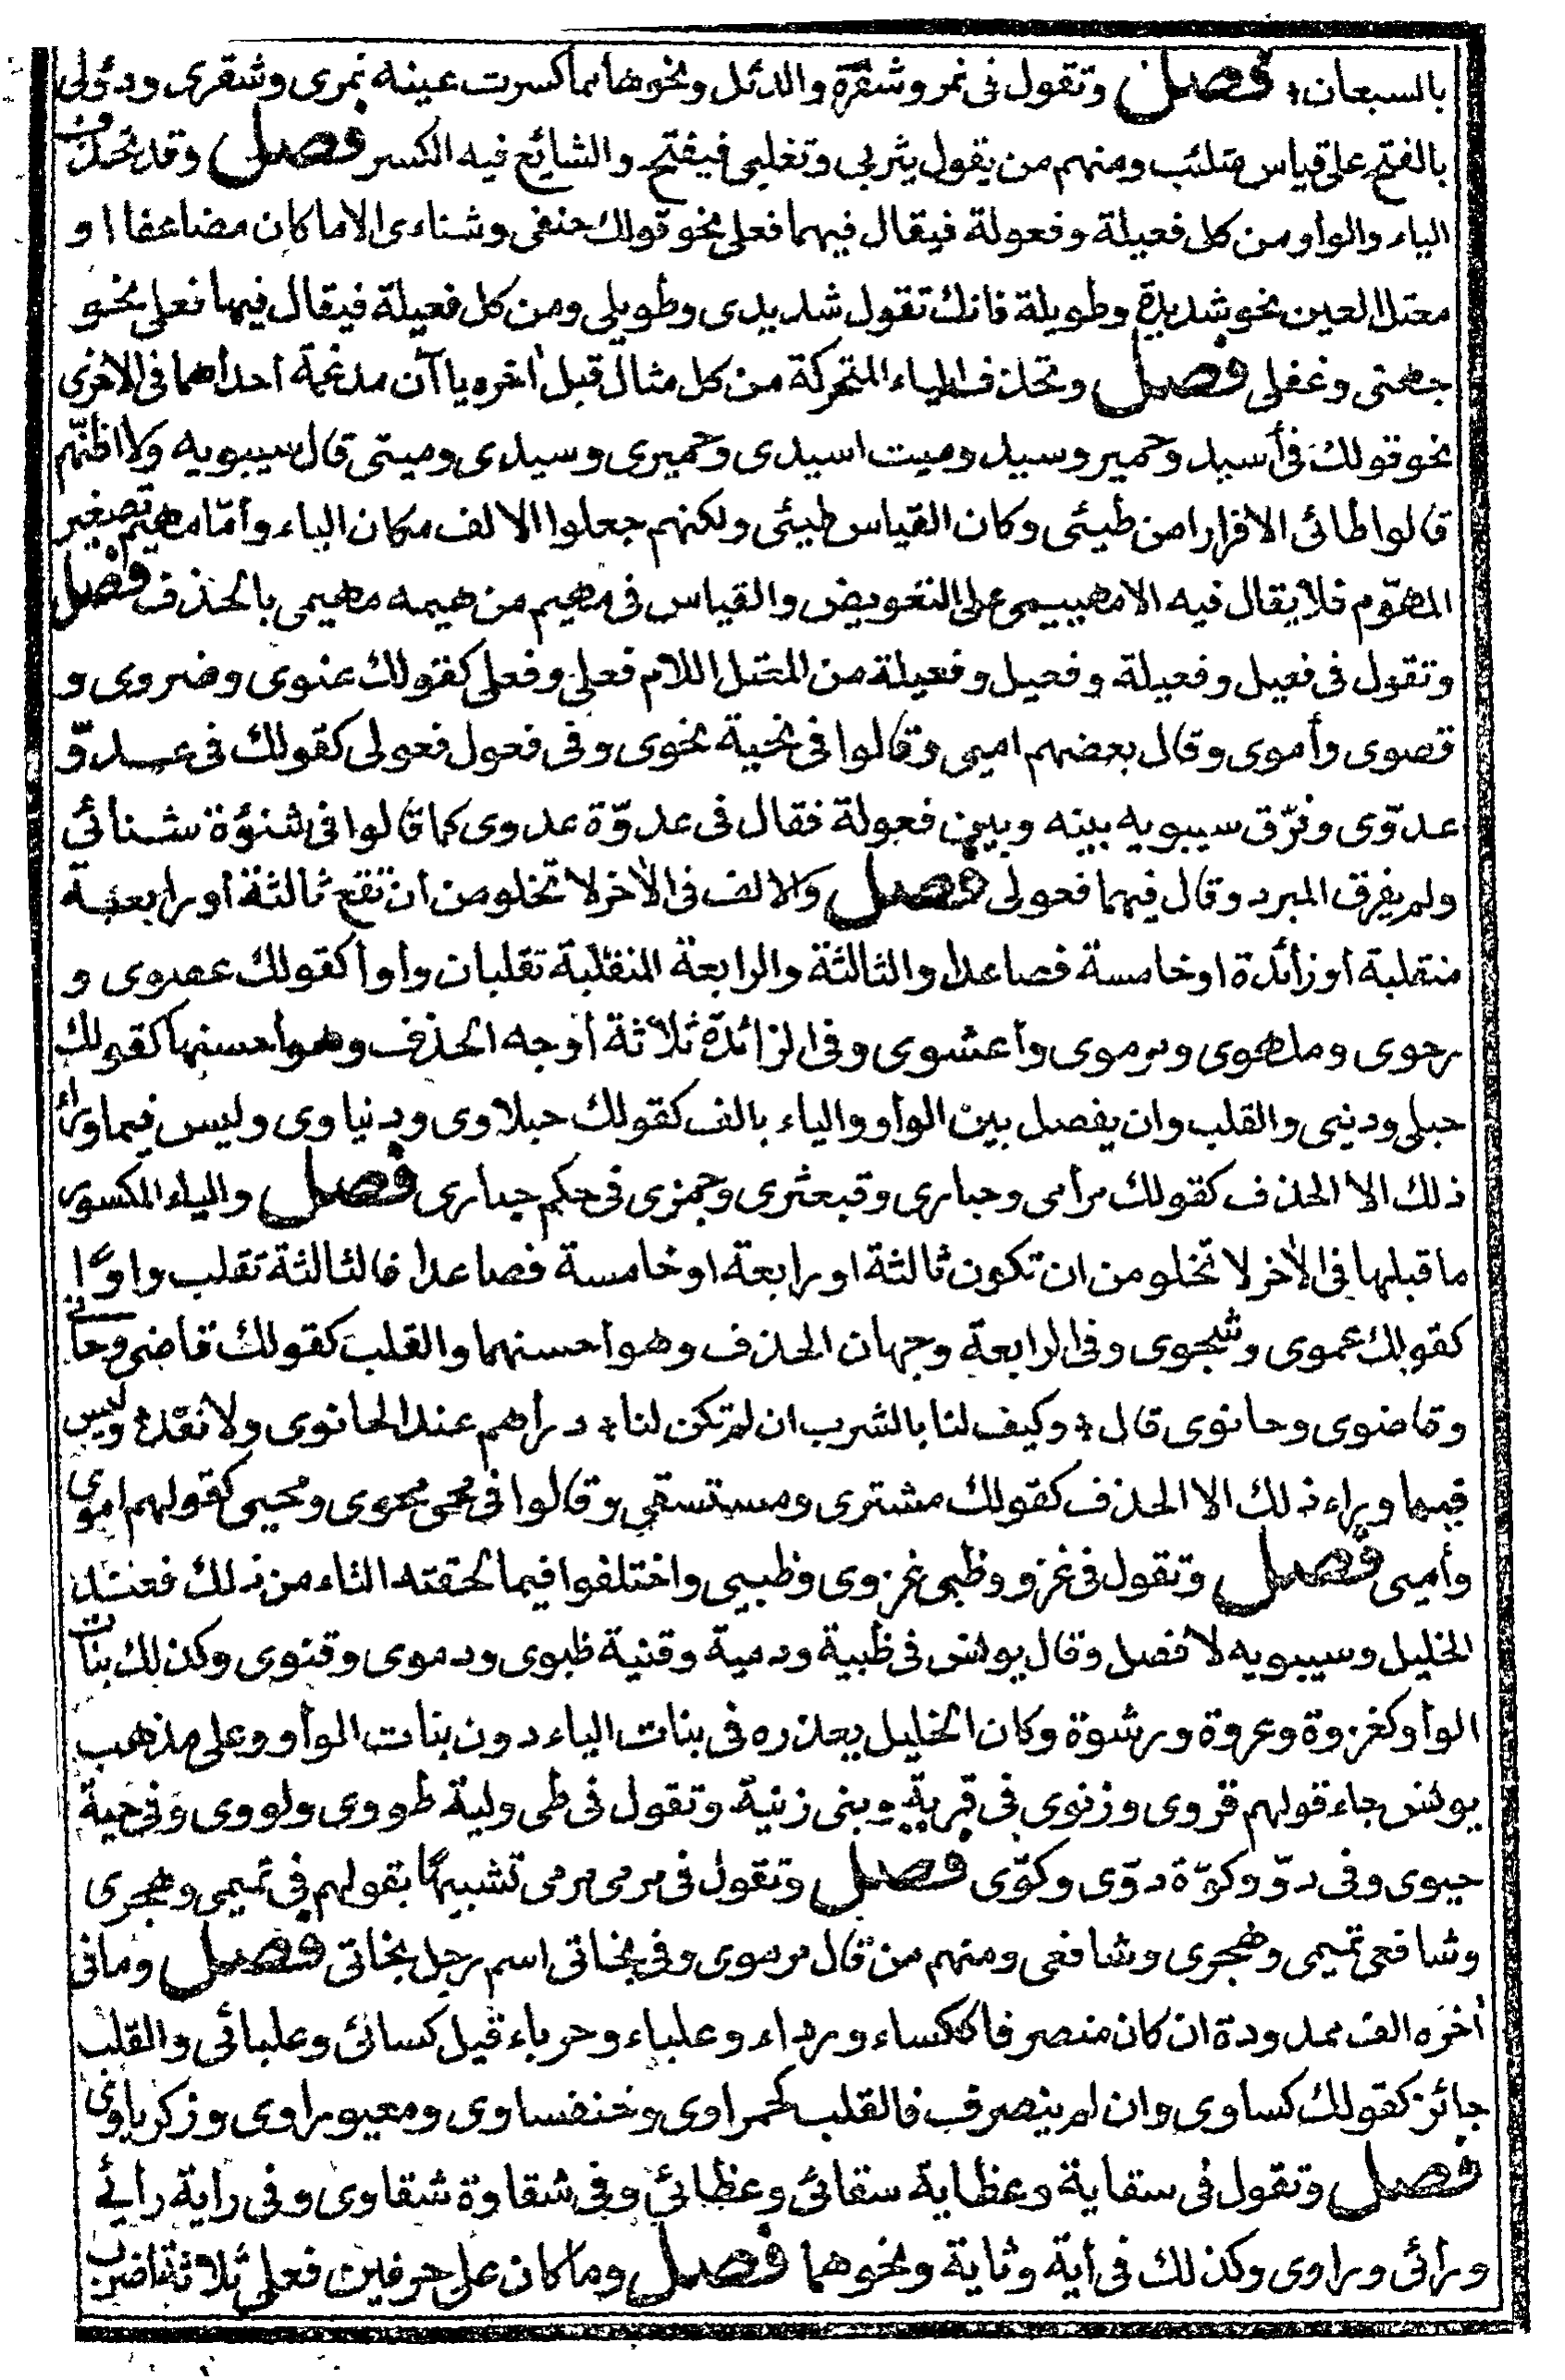 بالسبعان ؛ فصل وتقول فى نمر وشقرة والدئل ونحوها مما كسرت عينه نمرى وشقرى ودؤلى
بالفتح على قياس متلئب ومنهم من يقول يثربى وتغلبى فيفتح والشايع فيه الكسر فصل وقد تحذف
الياء والواو من كل فعيلة وفعولة فيقال فيهما فعلى نحو قولك حنفى وشناءى الا ما كان مضاعفا او
معتل العين نحو شديدة وطويلة فانك تقول شديدى وطويلى ومن كل فعيلة فيقال فيها فعلى نحو
جهنى وغفلى فصل وتحذف الياء المتحركة من كل مثال قبل أخره ياآن مدغمة احداهما فى الاخرى
نحو قولك فى أسيد وحمير وسيد وميت اسيدى وحميرى وسيدى وميتى قال سيبويه ولا اظنهم
قالوا طائى الا فرارا من طيئى وكان القياس طيئى ولكنهم جعلوا الالف مكان الياء وأمّا مهيم تصغير
المهوّم فلا يقال فيه الا مهييمى على التعويض والقياس فى مهيم من هيمه مهيمى بالحذف فصل
وتقول فى فعيل وفعيلة وفعيل وفعيلة من المعتل اللام فعلى وفعلى كقولك غنوى وضروى و
قصوى وأموى وقال بعضهم اميى وقالوا فى تحية تحوى وفى فعول فعولى كقولك فى عدوّ
عدوّى وفرّق سيبويه بينه وبين فعولة فقال فى عدوّة عدوى كما قالوا فى شنؤة شنائى
ولم يفرق المبرد وقال فيهما فعولى فصل والالف فى الأخر لا تخلو من أن تقع ثالثة أو رابعة
منقلبة أو زائدة او خامسة فصاعدا والثالثة والرابعة المنقلبة تقلبان واوا كقولك عصوى و
رحوى وملهوى ومرموى وأعشوى وفى الزائدة ثلاثة أوجه الحذف وهو أحسنها كقولك
حبلى ودنيى والقلب وان يفصل بين الواو والياء بالف كقولك حبلاوى ودنياوى وليس فيما وراء
ذلك الا الحذف كقولك مرامى وحبارى وقبعثرى وجمزى فى حكم حبارى فصل والياء المكسور
ما قبلها فى الأخر لا تخلو من ان تكون ثالثة او رابعة او خامسة فصاعدا فالثالثة تقلب واوًا
كقولك عموى وشجوى وفى الرابعة وجهان الحذف وهو أحسنهما والقلب كقولك قاضى وحانى
وقاضوى وحانوى قال ؛ وكيف لنا بالشرب ان لم تكن لنا ؛ دراهم عند الحانوى ولا نقد ؛ وليس
فيما وراء ذلك الا الحذف كقولك مشترى ومستسقى وقالوا فى محى محوى ومحيى كقولهم اموى
وأميى فصل وتقول فى غزو وظبى غزوى وظبيى واختلفوا فيما لحقته التاء من ذلك فعند
الخليل وسيبويه لا فصل وقال يونس فى ظبية ودمية وقنية ظبوى ودموى وقنوى وكذلك بنات
الواو كغزوة وعروة ورشوة وكان الخليل يعذره فى بنات الياء دون بنات الواو وعلى مذهب
يونس جاء قولهم قروى وزنوى فى قرية وبنى زنية وتقول فى طى ولية طووى ولووى وفى حية
حيوى وفى دوّ وكوّة دوّى وكوّى فصل وتقول فى مرمى مرمى تشبيهًا بقولهم فى تميمى وهجرى
وشافعى تميمى وهجرى وشافعى ومنهم من قال مرموى وفى بخاتى اسم رجل بخاتى فصل وما فى
أخره الف ممدودة ان كان منصرفا ككساء ورداء وعلباء وحرباء قيل كسائى وعلبائى والقلب
جائز كقولك كساوى وان لم ينصرف فالقلب كحمراوى وخنفساوى ومعيوراوى وزكرياوى
فصل وتقول فى سقاية وعظاية سقائى وعظائى وفى شقاوة شقاوى وفى راية رايى
ورائى وراوى وكذلك فى أية وثاية ونحوهما فصل وما كان على حرفين فعلى ثلاثة اضرب